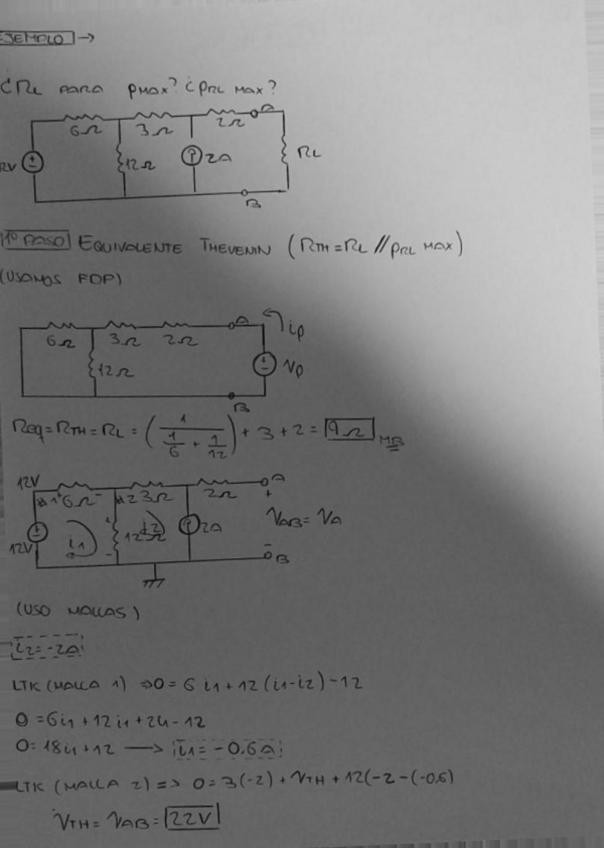 EJEMPLO →
¿RL PARA PMAX? ¿PRL MAX?
6Ω 3Ω 2Ω A
2V 12Ω 2A RL
B
1º PASO EQUIVALENTE THEVENIN (RTH=RL // PRL MAX)
(USAMOS FDP)
A ip
6Ω 3Ω 2Ω
12Ω Vp
B
Req=RTH=RL = (1 / (1/6 + 1/12)) + 3 + 2 = 9Ω
12V A
+ 6Ω - 3Ω 2Ω +
12V i1 12Ω i2 2A VAB = VA
- B
(USO MALLAS)
i2=-2A
LTK (MALLA 1) ⇒ 0 = 6 i1 + 12 (i1-i2) - 12
0 = 6i1 + 12 i1 + 24 - 12
0 = 18i1 + 12 → i1 = -0.6A
LTK (MALLA 2) => 0 = 3(-2) + VTH + 12(-2-(-0.6)
VTH = VAB = 22V